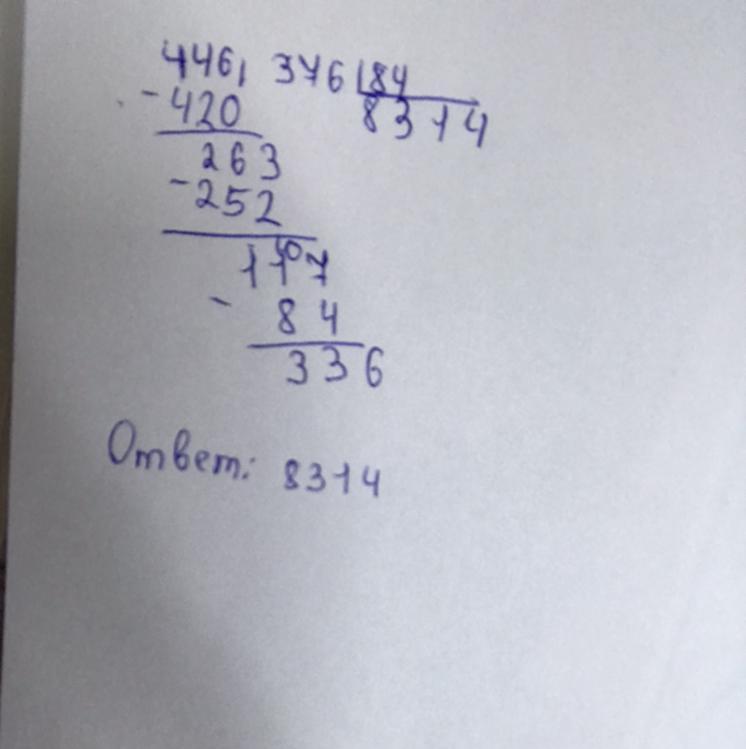 446, 376 | 84
- 420 8314
263
- 252
117
- 84
336
Ответ: 8314